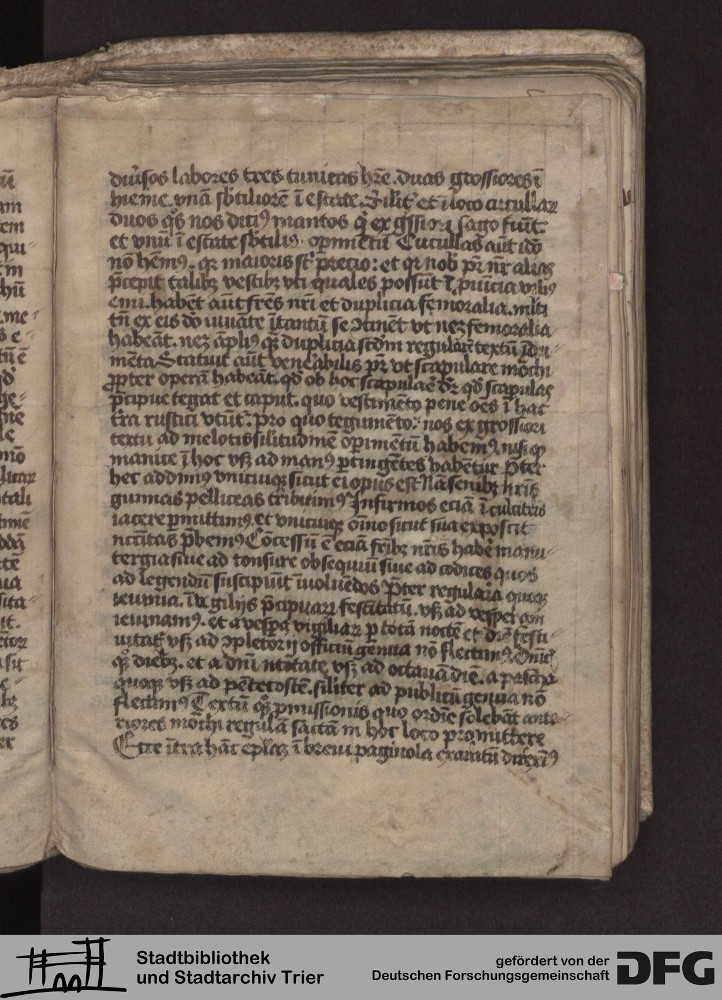 diúsos labores tres tunicas hr̄e. duas grossiores ī
hieme. vnā sb̄tiliorē ī estate. Silīt et ī loco cucullaꝝ
duos q̄s nos dicimꝰ mantos q̄ ex gssiori sago fiūt.
et vnū ī estate sb̄tiliꝰ opimētū Cucullas aūt ido
nō hēmꝰ. qꝛ maioris st̄ precio: et qꝛ nob̄ pr̄ nr̄ alias
p̄cepit talibꝫ vestibꝫ vti quales possūt ī ꝓuīcia viliꝰ
emi. habēt aūt frēs nr̄i et duplicia femoralia. ml̄ti
tn̄ ex eis do
habeāt. neꝫ āpliꝰ qꝫ duplicia scdm̄ regularē textū īdu
mēta Statuit aūt venerabilis pr̄ vt scapulare mōchi
ꝓpter operā habeāt. qd̄ ob hoc scapulaē dr̄ qd̄ scapulas
p̄cipue tegat et caput. quo vestimēto pene oēs ī hac
tr̄a rustici vtūt᷑. Pro quo tegumēto: nos ex grossiori
textu ad melotis silitudinē opimētū habemꝰ. nisi qꝫ
manice ī hoc vsꝫ ad manꝰ ꝑtingētes habēt᷑ Pret᷑
hec addimꝰ vnicuiqꝫ sicut ei opus est Nā senibꝫ nr̄is
gunnas pelliceas tribuimꝰ Infirmos eciā ī culcitris
iacere ꝑmittimꝰ. et vnicuiqꝫ oīno sicut sua exposcit
nc̄c̄itas p̄bemꝰ Cōcessū ē eciā frībꝫ nr̄is habē manu
tergia siue ad tonsure obsequiū siue ad codices quos
ad legendū suscipiūt īuoluēdos Pret᷑ regularia quoqꝫ
ieiunia. ī vigilijs p̄cipuaꝝ festitatū. vsꝫ ad vesperam
ieiunamꝰ. et a vespa vigiliaꝝ ꝑ totā noctē et diē festi
uitatꝭ vsꝫ ad ꝯpletorij officiū genua nō flectimꝰ. Dn̄ic̄
qꝫ diebꝫ. et a dn̄i natitate vsꝫ ad octauā diē. a pascha
quoqꝫ vsꝫ ad pētecostē. siliter ad publicū genua nō
flectimꝰ Textū qꝫ ꝓmissionis quo ordīe solebāt ante
riores mōchi regulā sactā in hoc loco promittere
Ecce īfra hāc eplāꝫ ī breui paginola exaratū direxiꝰ
Stadtbibliothek
und Stadtarchiv Trier
gefördert von der
Deutschen Forschungsgemeinschaft
DFG